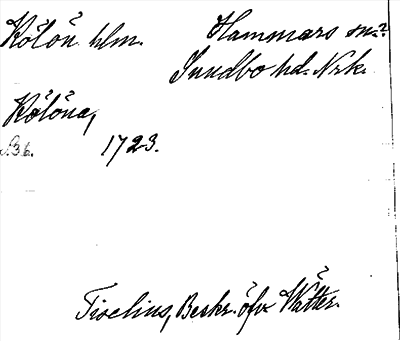 Kölön hlm. Hammars sn.?
Sundbo hd. Nrk.
Kölöna,
S. 36. 1723.
Tiselius, Beskr. öfv. Wätter.